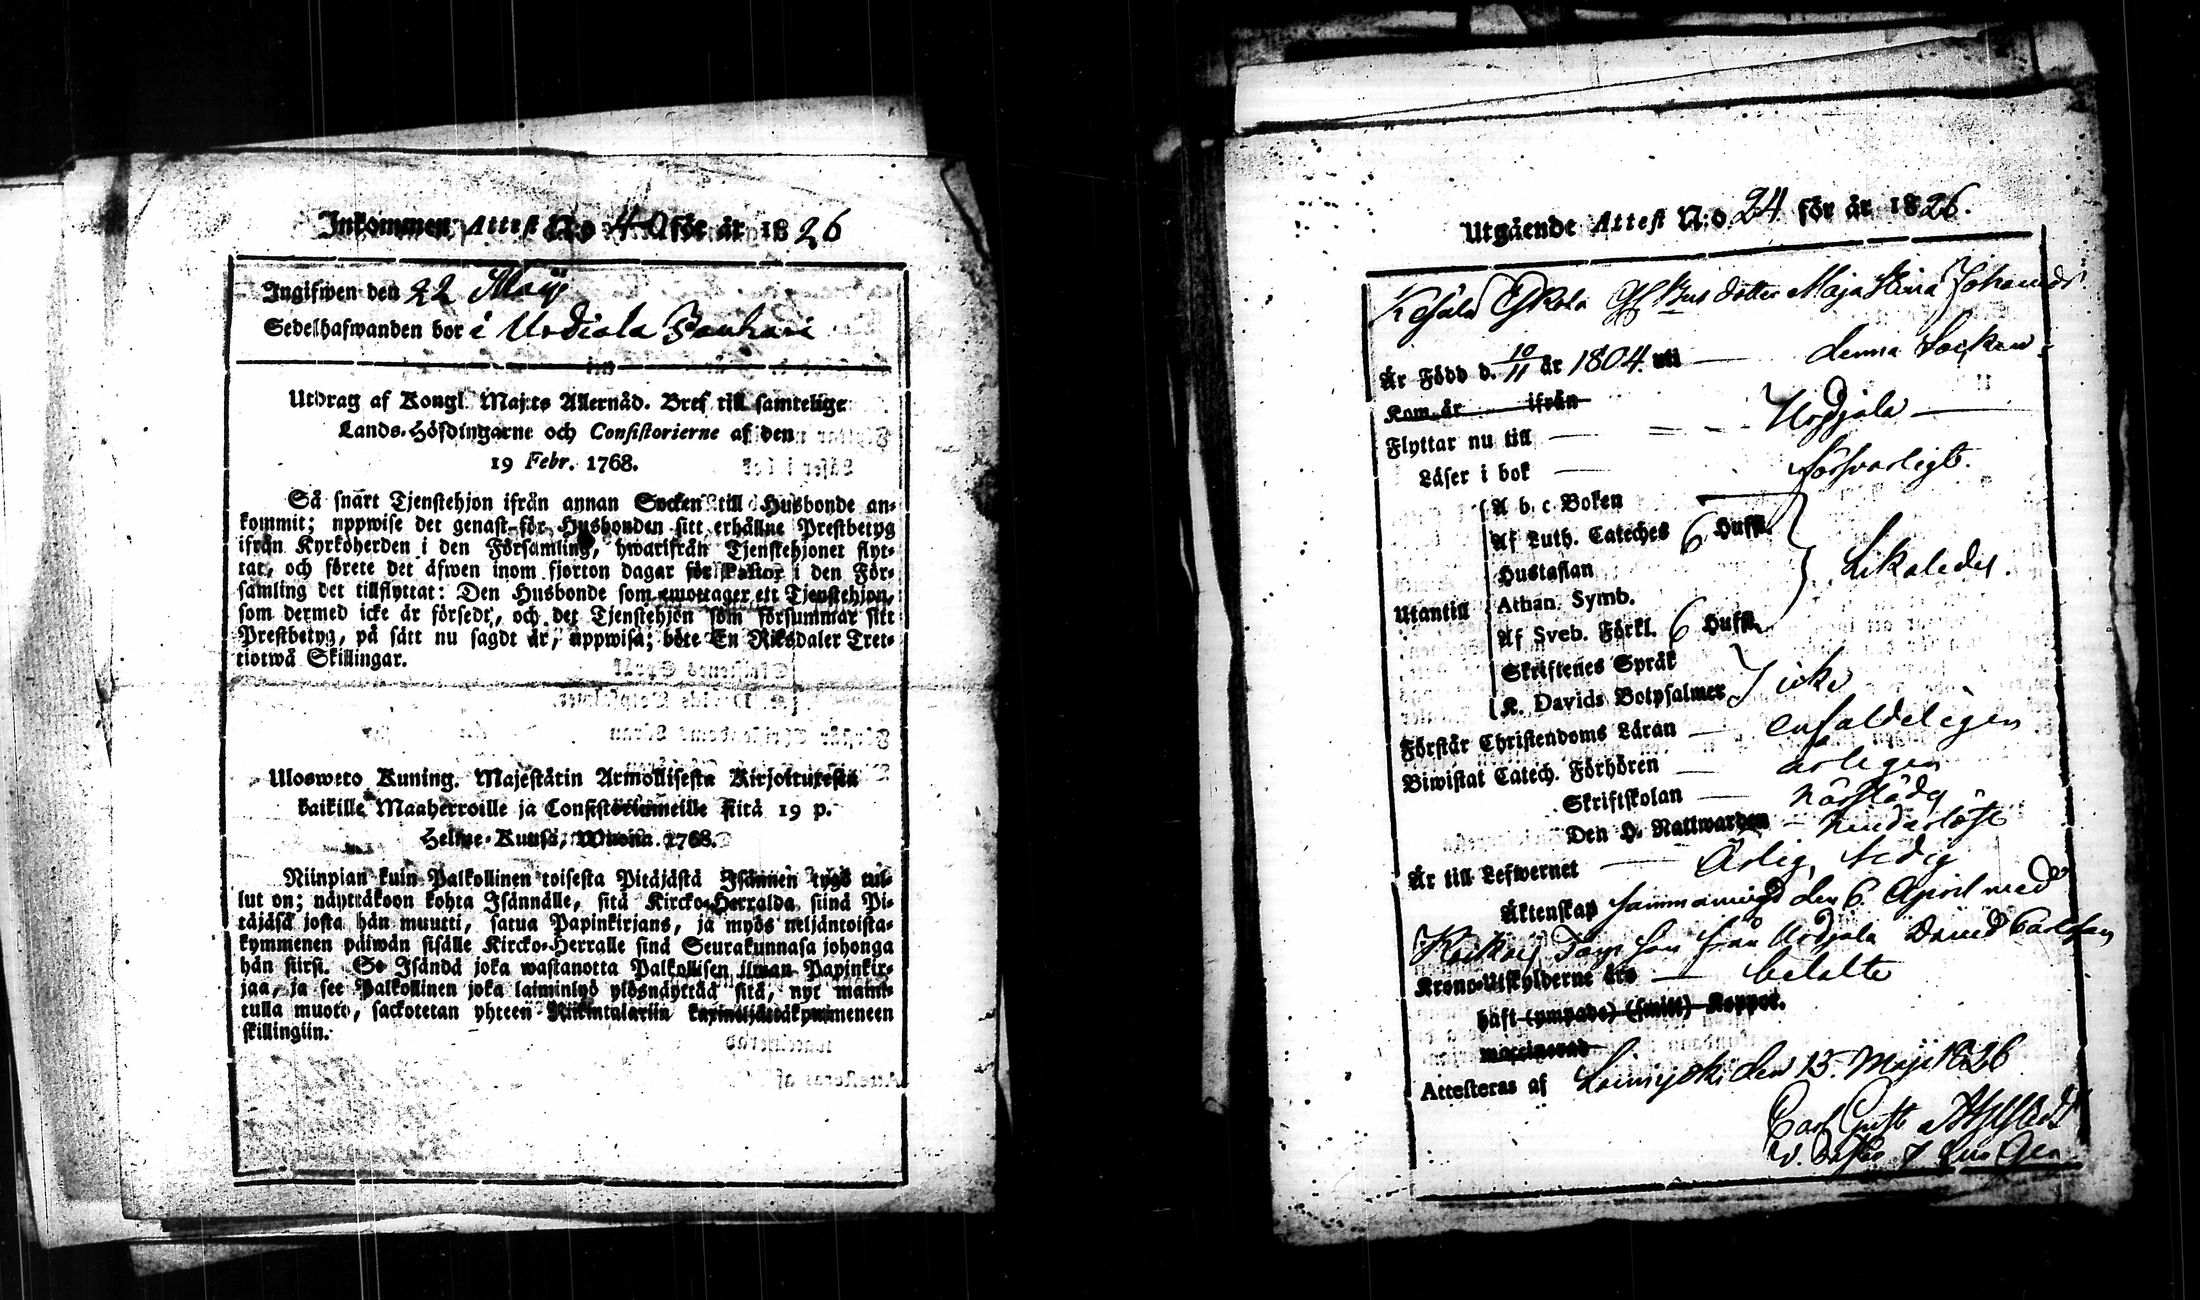 Inkommen Attest No 40 för år 1826
Ingifwen den 22 Maij
Sedelhafwanden bor i Urdiala
Utdrag af Kongl. Maj:ts Allernåd. Bref till samtelige
Lands-Höfdingarne och Consistorierne af den
19 Febr. 1768.
Så snart Tjenstehjon ifrån annan Socken till Husbonde an-
kommit; uppwise det genast för Husbonden sitt erhållne Prestbetyg
ifrån Kyrkoherden i den Församling, hwarifrån Tjenstehjonet flyt-
tat, och förete det äfwen inom fjorton dagar för Pastor i den För-
samling det tillflyttat: Den Husbonde som emottager ett Tjenstehjon,
som dermed icke är försedt, och det Tjenstehjon som försummar sitt
Prestbetyg, på sätt nu sagdt är, uppwisa; böte En Riksdaler Tret-
tiotwå Skillingar.
Ulosweto Kuning. Majestätin Armollisesta Kirjoituxesta
kaikille Maaherroille ja Consistoriumeille siitä 19 p.
Helme-Kuusa, Wuonna 1768.
Niinpian kuin Palkollinen toisesta Pitäjästä Isännen tygö tul-
lut on; näyttäkoon kohta Isännälle, sitä Kircko-Herralda siinä Pi-
täjäsä josta hän muutti, saatua Papinkirjans, ja myös neljäntoista-
kymmenen päiwän sisälle Kircko-Herralle siinä Seurakunnasa johonga
hän siirsi. Se Isändä joka wastanotta Palkollisen ilman Papinkir-
jaa, ja see Palkollinen joka laiminlyö ylösnäyttää sitä, nyt maini-
tulla muoto, sackotetan yhteen Riikintalariin kaxineljättäkymmeneen
skillingiin.
Utgående Attest N:o 24 för år 1826.
dotter Maja Stina Johansdr
Är Född d. 10/11 år 1804. uti denna Socken
Kom år ifrån
Flyttar nu till Urdjala
Läser i bok försvarligt.
A b c Boken
Af Luth. Cateches 6 Hufst.
Hustaflan
Likaledes.
Athan. Symb.
Utantill
Af Sveb. Förkl. 6 Hufst.
Skriftenes Språk
K. Davids Botpsalmer icke
Förstår Christendoms Läran enfaldeligen
Biwistat Catech. Förhören årligen
Skriftskolan
Den H. Nattwarden
Är till Lefwernet Ärlig, ledig
Äktenskap den 6 April med
från Urdjala David Carlsson
Krono-Utskylderne äro betalte
haft (ympade) (smitt) Koppor.
vaccinerad
Attesteras af den 15. Maji 1826
Carl Gust.